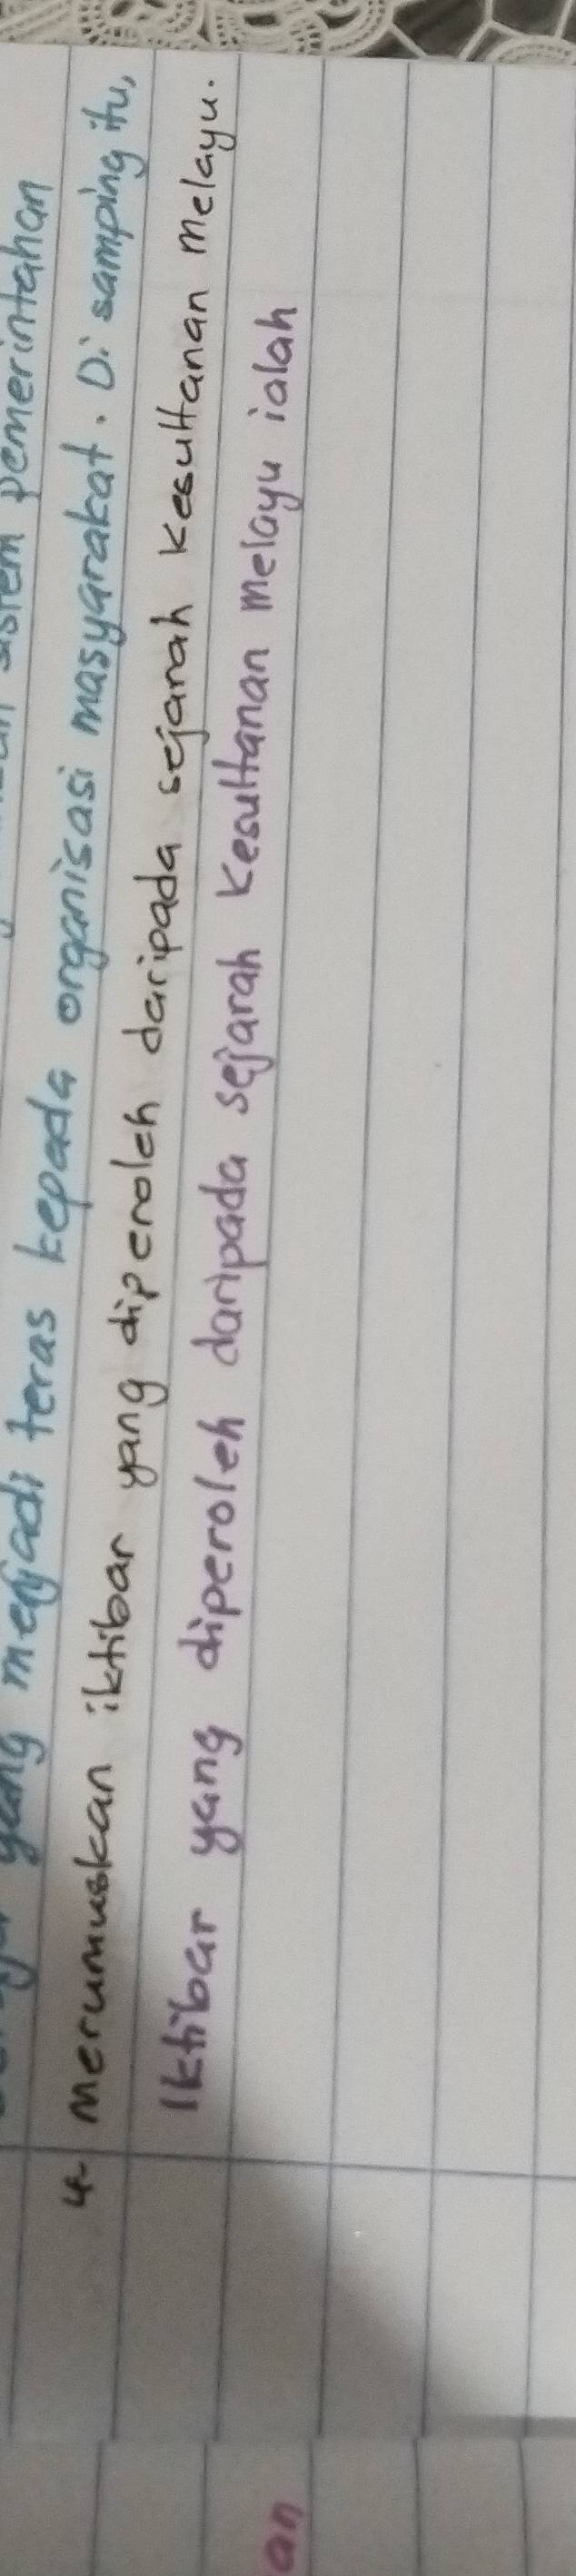 pemerintahan
yang menjadi teras kepada organisasi masyarakat. Di samping itu,
4. Merumuskan iktibar yang diperoleh daripada sejarah Kesultanan Melayu.
Iktibar yang diperoleh daripada sejarah Kesultanan Melayu ialah
an